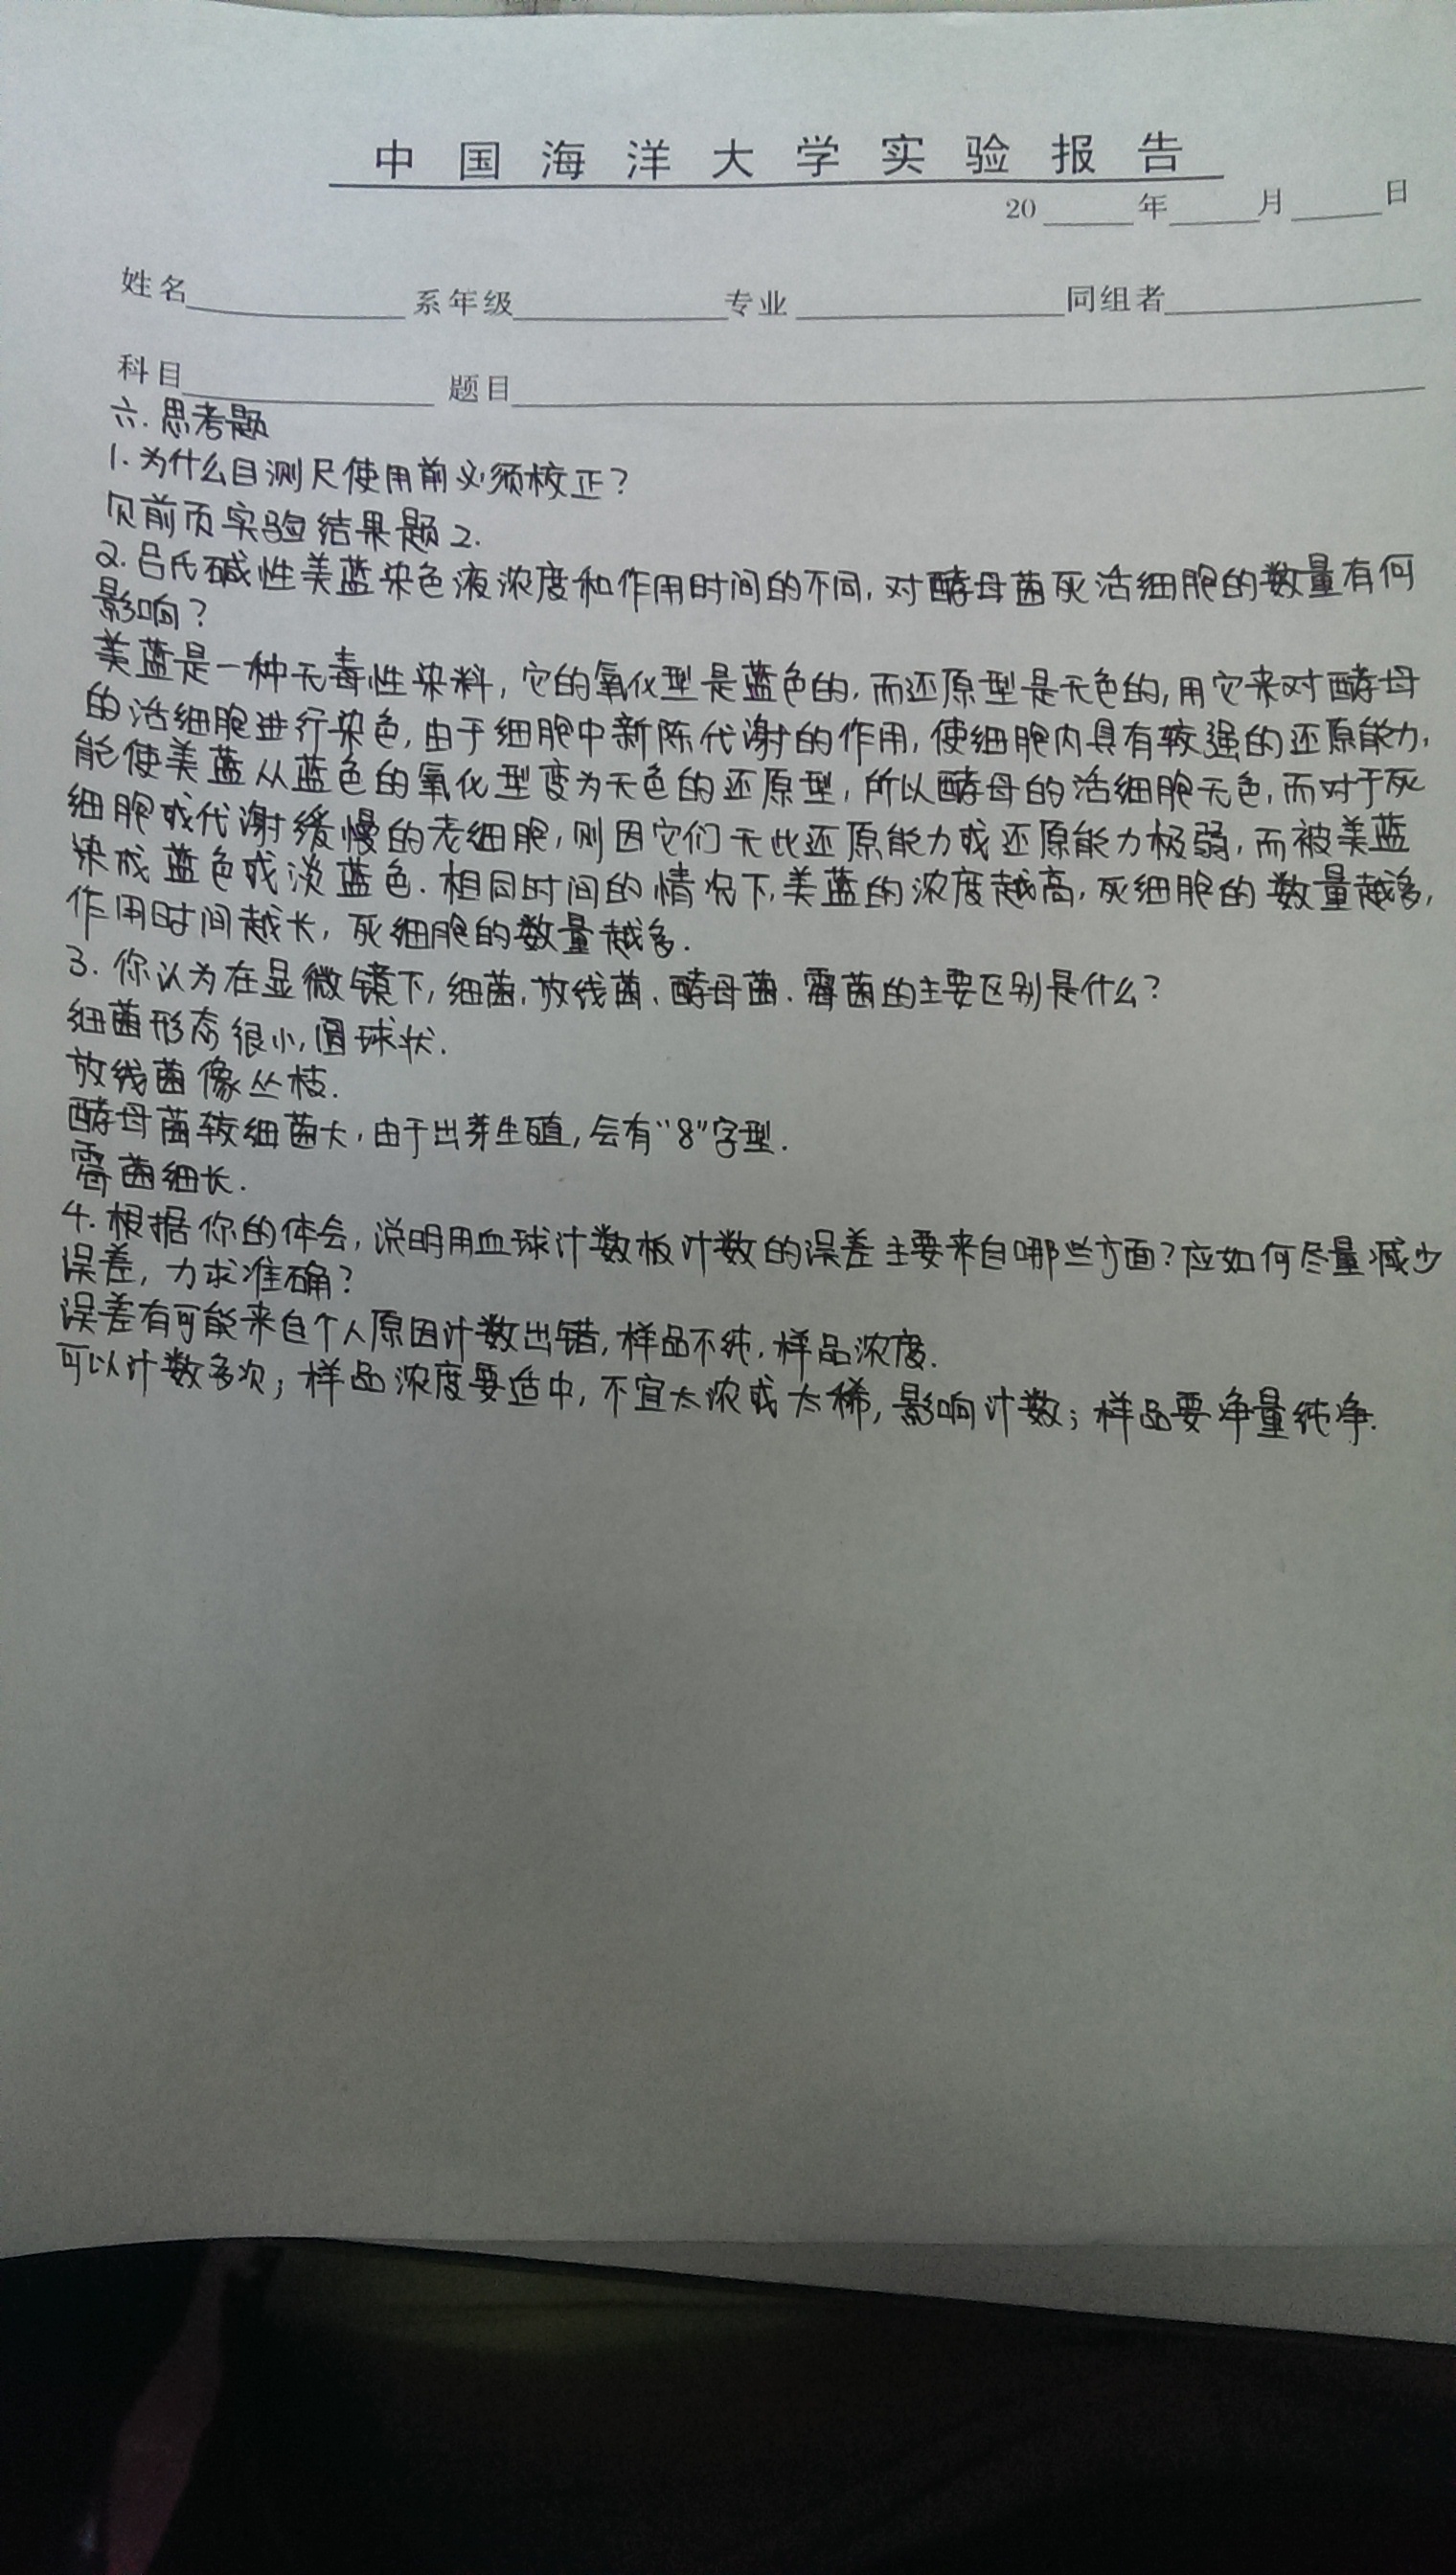 中国海洋大学实验报告
20 年 月 日
姓名 系年级 专业 同组者
科目 题目
六.思考题
1.为什么目测尺使用前必须校正?
见前页实验结果题2.
2.吕氏碱性美蓝染色液浓度和作用时间的不同,对酵母菌死活细胞的数量有何
影响?
美蓝是一种无毒性染料,它的氧化型是蓝色的,而还原型是无色的,用它来对酵母
的活细胞进行染色,由于细胞中新陈代谢的作用,使细胞内具有较强的还原能力,
能使美蓝从蓝色的氧化型变为无色的还原型,所以酵母的活细胞无色,而对于死
细胞或代谢缓慢的老细胞,则因它们无此还原能力或还原能力极弱,而被美蓝
染成蓝色或淡蓝色.相同时间的情况下,美蓝的浓度越高,死细胞的数量越多,
作用时间越长,死细胞的数量越多.
3.你认为在显微镜下,细菌、放线菌、酵母菌、霉菌的主要区别是什么?
细菌形态很小,圆球状.
放线菌像丛枝.
酵母菌较细菌大,由于出芽生殖,会有“8”字型.
霉菌细长.
4.根据你的体会,说明用血球计数板计数的误差主要来自哪些方面?应如何尽量减少
误差,力求准确?
误差有可能来自个人原因计数出错,样品不纯,样品浓度.
可以计数多次;样品浓度要适中,不宜太浓或太稀,影响计数;样品要净量纯净.